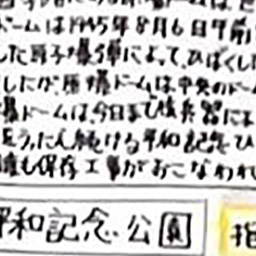 ドームは1945年8月6日午前
した原子爆弾によって、ひばくし
したが、原爆ドームは、中央のドー
爆ドームは、今日まで核兵器によ
を うったえ続ける平和記念ひ
も保存工事がおこなわれ
平和記念公園
指